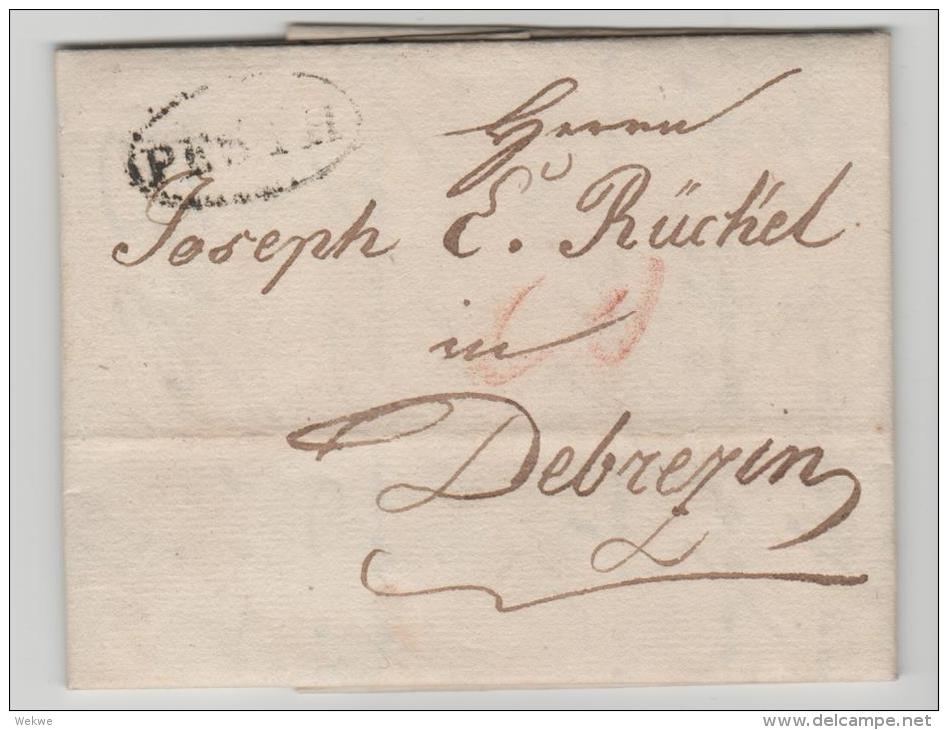 PESTH
Herrn
Joseph E. Rückel
in
Debrezin
Wekwe
www.delcampe.net